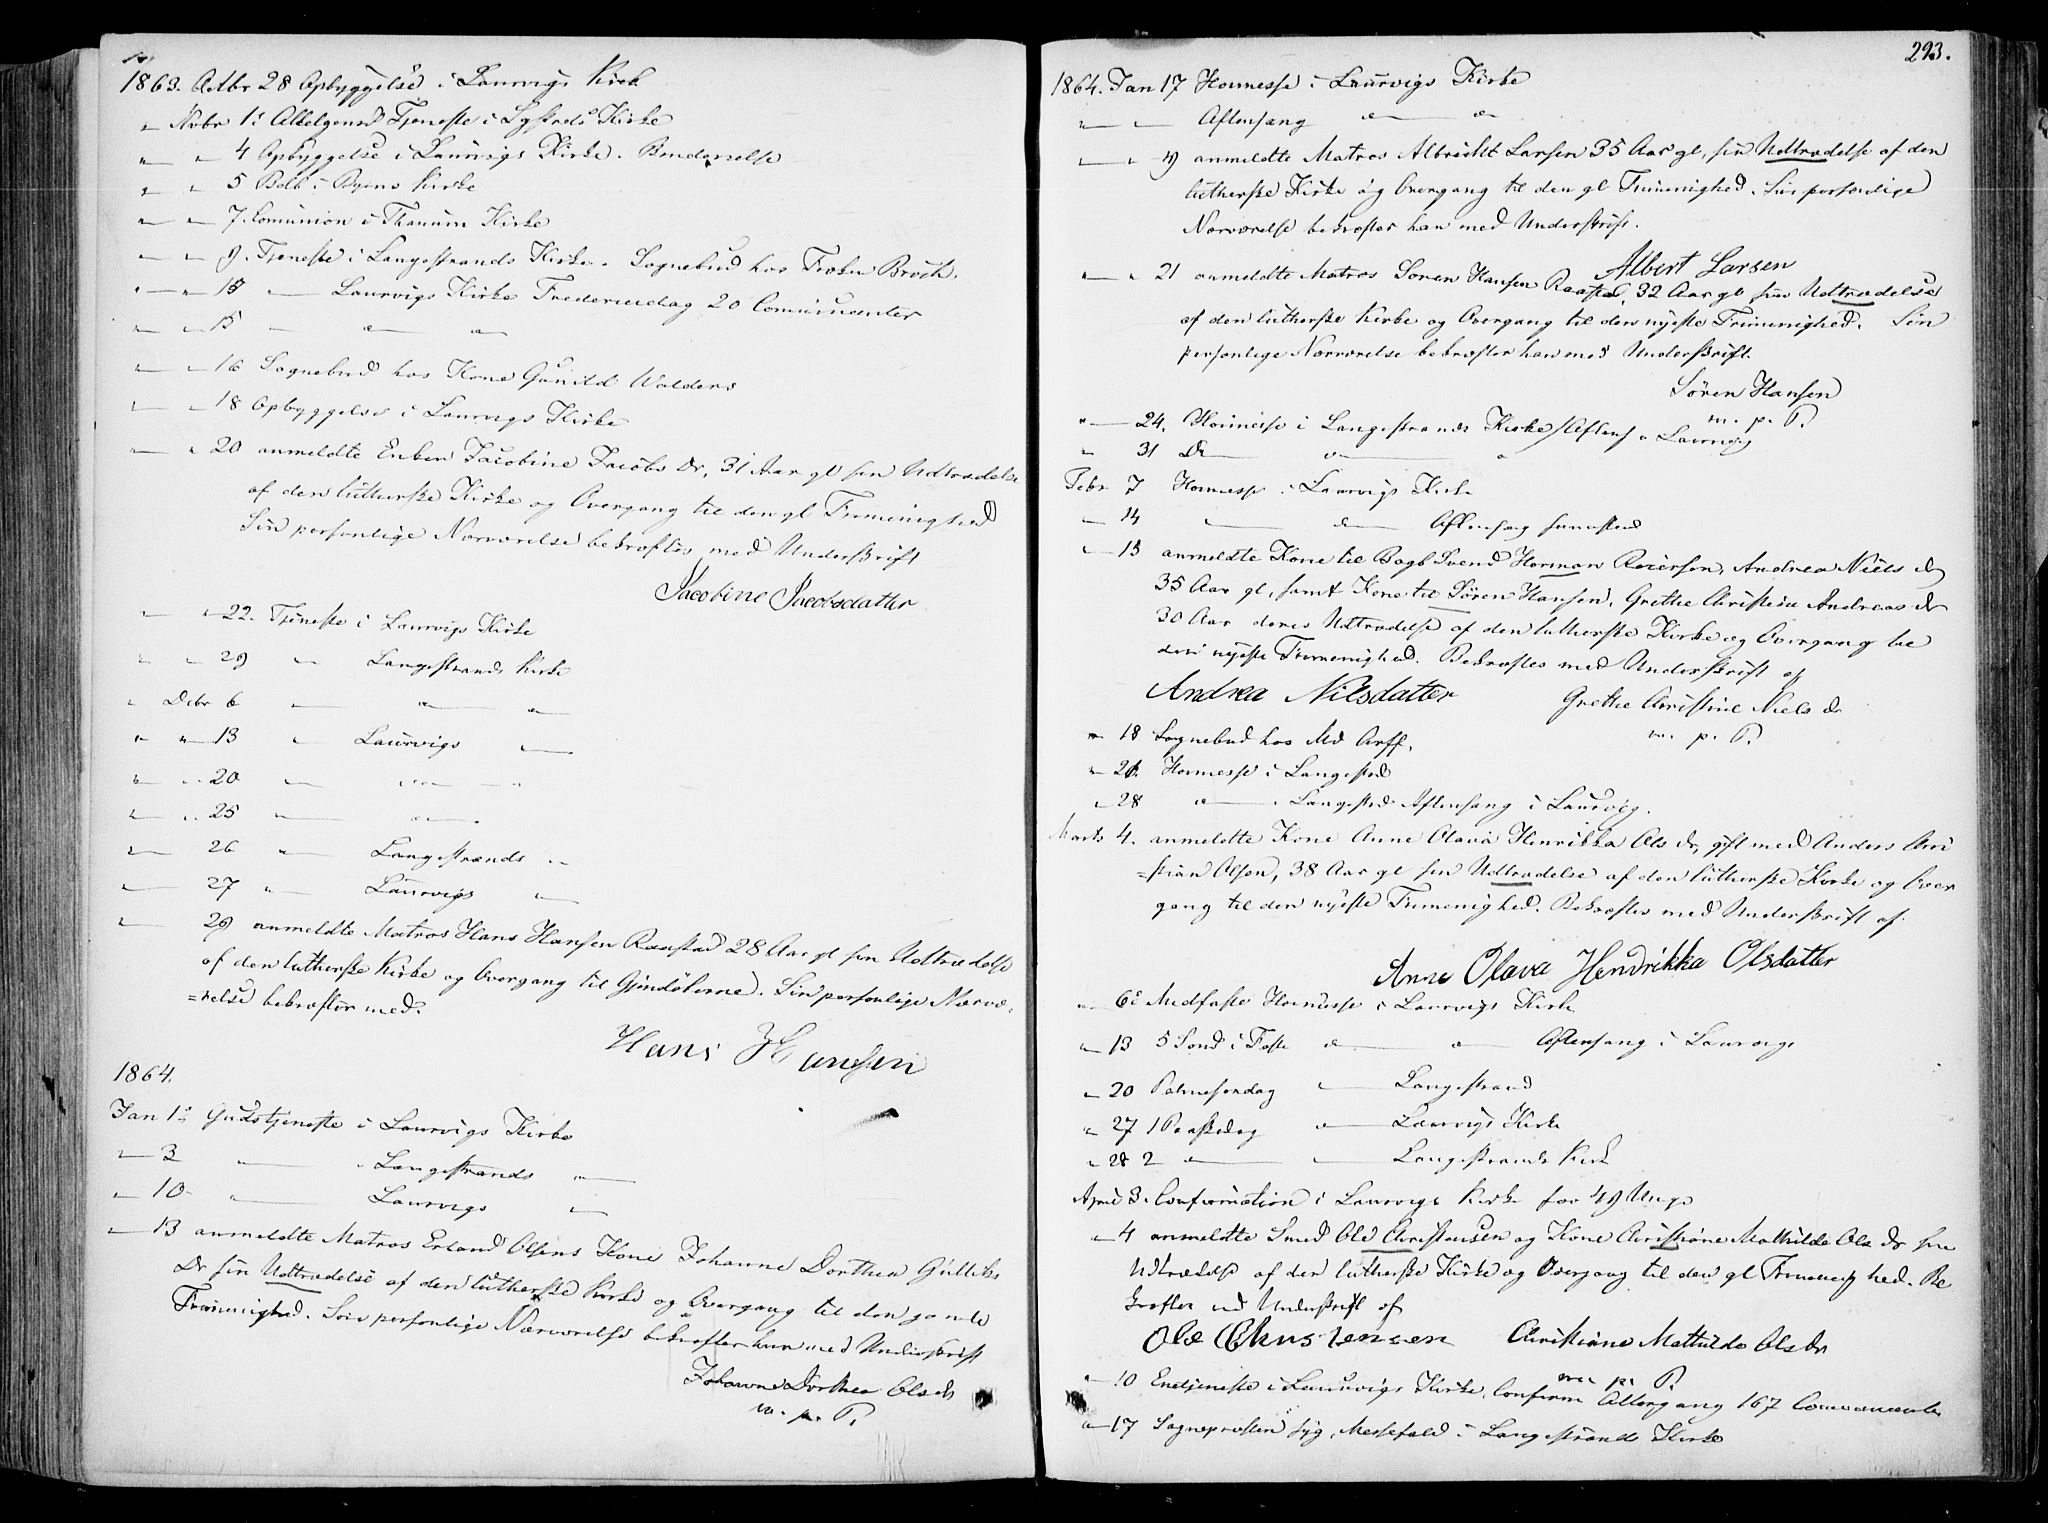 1863. Octbr 28 Opbyggelse i Laurvigs Kirke
" Novbr 1ste Allehgensd Tjeneste i Kirke
" " 4 Opbyggelse i Laurvigs Kirke.
" " 5 i Byens Kirke
" " 7. Comunion i Thanum Kirke
" " 9. Tjeneste i Langestrands Kirke. Sognebud hos Frøken Brock.
" " 13 " Laurvigs Kirke 20 Comunicanter
" " 15 " " "
" " 16 Sognebud hos Kone Gunild Wolders
" " 18 Opbyggelse i Laurvigs Kirke
" " 20 anmeldte Enken Jacobine Jacobs Dr, 31 Aar gl sin Udtrædelse
af den lutherske Kirke og Overgang til den gl Frimenighed
Sin personlige Nærværelse bekræftes med Underskrift
Jacobine Jacobsdatter
" " 22. Tjeneste i Laurvigs Kirke
" " 29 " Langestrands Kirke
" Decbr 6 " " "
" " 13 " Laurvigs "
" " 20 " " "
" " 25 " "
" " 26 " Langestrands "
" " 27 " Laurvigs "
" 29 anmeldte Matros Hans Hansen Raastad 28 Aar gl sin Udtrædelse
af den lutherske Kirke og Overgang til Gjendøberne. Sin personlige Nærvæ-
=relse bekræfter med.
Hans Hansen
1864.
Jan 1ste Gudstjeneste i Laurvigs Kirke
" 3 " i Langestrands "
" 10 " Laurvigs "
" 13 anmeldte Matros Erland Olsens Kone Johanne Dorthea Gulliks
Dr sin Udtrædelse af den lutherske Kirke og Overgang til den gamle
Frimenighed. Sin personlige Nærværelse bekræfter hun med Underskrift
Johanne Dorthea Olsdr
m. p. P.
293.
1864. Jan 17 Hovmesse i Laurvigs Kirke
" " Aftensang " "
" " 19 anmeldte Matros Albrecht Larsen 35 Aar gl, sin Udtrædelse af den
lutherske Kirke og Overgang til den gl Frimenighed. Sin personlige
Nærværelse bekræfter han med Underskrift.
Albert Larsen
" " 21 anmeldte Matros Søren Hansen Raastad, 32 Aar gl sin Udtrædelse
af den lutherske Kirke og Overgang til den nyeste Frimenighed. Sin
personlige Nærværelse bekræfter han med Underskrift.
Søren Hansen
m. p. P.
" 24. Hovmesse i Langestrands Kirke / Aftens i Laurvig
" 31 Do " "
Febr 7 Hovmesse i Laurvigs Kirke
" 14 " " Aftensang
" 15 anmeldte Kone til Bogb Svend Herman Reiersen, Andrea Niels dr
35 Aar gl, samt Kone til Søren Hansen, Grethe Christine Andreas dr
30 Aar deres Udtrædelse af den lutherske Kirke og Overgang til
den nyeste Frimenighed. Bekræftes med Underskrift af
Andrea Nilsdatter Grethe Christine Niels dr
m. p. P.
" 18 Sognebud hos Md Arff.
" 21. Hovmesse i Langestrd
" 28 " i Langestrd Aftensang i Laurvig.
Marts 4. anmeldte Kone Anne Olava Henrikka Ols dr, gift med Anders Chri
=stian Olsen, 38 Aar gl sin Udtrædelse af den lutherske Kirke og Over
gang til den nyeste Frimenighed. Bekræftes med Underskrift af.
Anne Olava Hendrikka Olsdatter
" 6te Midfaste Hovmesse i Laurvigs Kirke
" 13 5 Sønd i Faste " " Aftensang i Laurvigs
" 20 Palmesøndag " Langestrand
" 27 1 Paaskedag " Laurvigs Kirke
" 28 2 " " Langestrands Kirk
April 3. Confirmation i Laurvigs Kirke for 49 Unge
" 4 anmeldte Smed Ole Christensen og Kone Christiane Mathilde Ols dr sin
Udtrædelse af den lutherske Kirke og Overgang til den gl Frimenighed. Be
kræftes ved Underskrift af
Ole Christensen Christiane Mathilde Olsdr
m. p. P.
" 10 Enetjeneste i Laurvigs Kirke, Confirm Altergang 167 Communicanter
" 17 Sognepræsten syg, Messefald i Langestrands Kirke